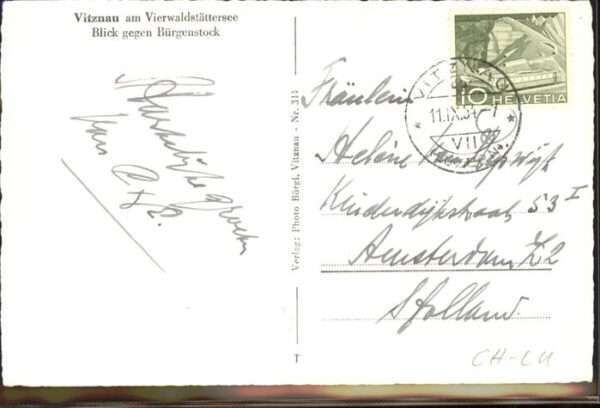 Vitznau am Vierwaldstättersee
Blick gegen Bürgenstock
Hartelijke groeten
van
Verlag: Photo Bürgi, Vitznau - Nr. 311
T
10 HELVETIA
VITZNAU
11.IX.51
VII
Fräulein
Helène
Kinderdijkstraat 53 I
Amsterdam Z2
Holland
CH-LU